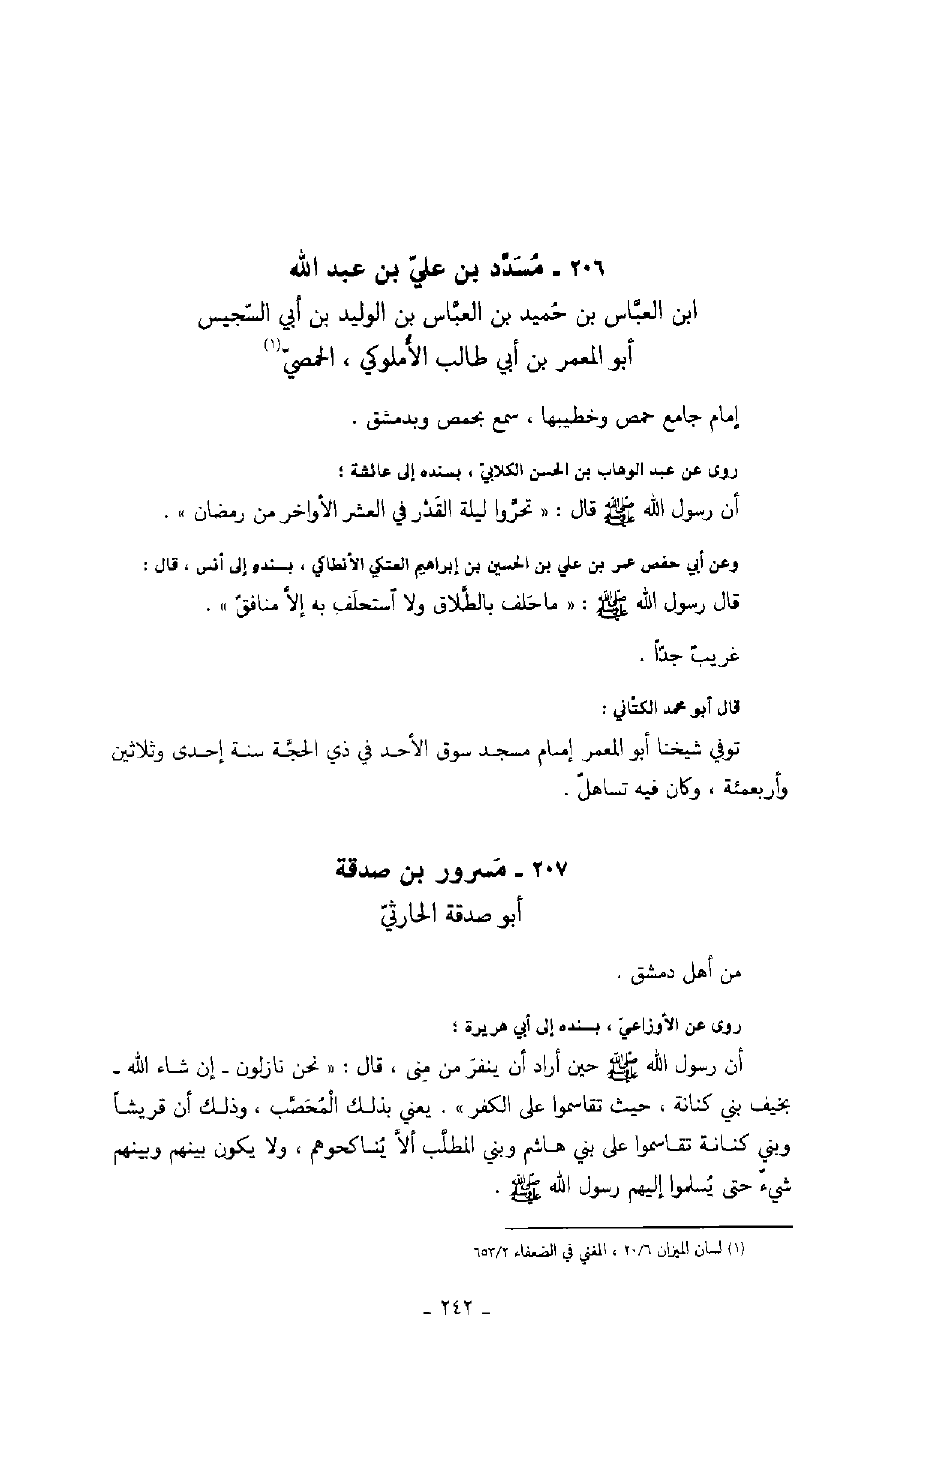 ٢٠٦ ـ مُسَدَّد بن عليّ بن عبد الله
ابن العبَّاس بن حُميد بن العبَّاس بن الوليد بن أبي السّجيس
أبو المعمر بن أبي طالب الأُملوكي ، الحمصيّ(١)
إمام جامع حمص وخطيبها ، سمع بحمص وبدمشق .
روى عن عبد الوهاب بن الحسن الكلابيّ ، بسنده إلى عائشة ؛
أن رسول الله ﷺ قال : « تحرَّوا ليلة القَدْر في العشر الأواخر من رمضان » .
وعن أبي حفص عمر بن علي بن الحسين بن إبراهيم العتكي الأنطاكي ، بسنده إلى أنس ، قال :
قال رسول الله ﷺ : « ماحَلف بالطَّلاق ولا آستحلَف به إلاّ منافقٌ » .
غريبٌ جدّاً .
قال أبو محمد الكتَّاني :
توفي شيخنا أبو المعمر إمام مسجد سوق الأحد في ذي الحجَّة سنة إحدى وثلاثين
وأربعمئة ، وكان فيه تساهلٌ .
٢٠٧ ـ مَسرور بن صدقة
أبو صدقة الحارثيّ
من أهل دمشق .
روى عن الأوزاعيّ ، بسنده إلى أبي هريرة ؛
أن رسول الله ﷺ حين أراد أن ينفرَ من مِنى ، قال : « نحن نازلون ـ إن شاء الله ـ
بخيف بني كنانة ، حيث تقاسموا على الكفر » . يعني بذلك الْمُحَصَّب ، وذلك أن قريشاً
وبني كنانة تقاسموا على بني هاشم وبني المطلَّب ألاَّ يُناكحوهم ، ولا يكون بينهم وبينهم
شيءٌ حتى يُسلموا إليهم رسول الله ﷺ .
(١) لسان الميزان ٢٠/٦ ، المغني في الضعفاء ٦٥٣/٢
ـ ٢٤٢ ـ